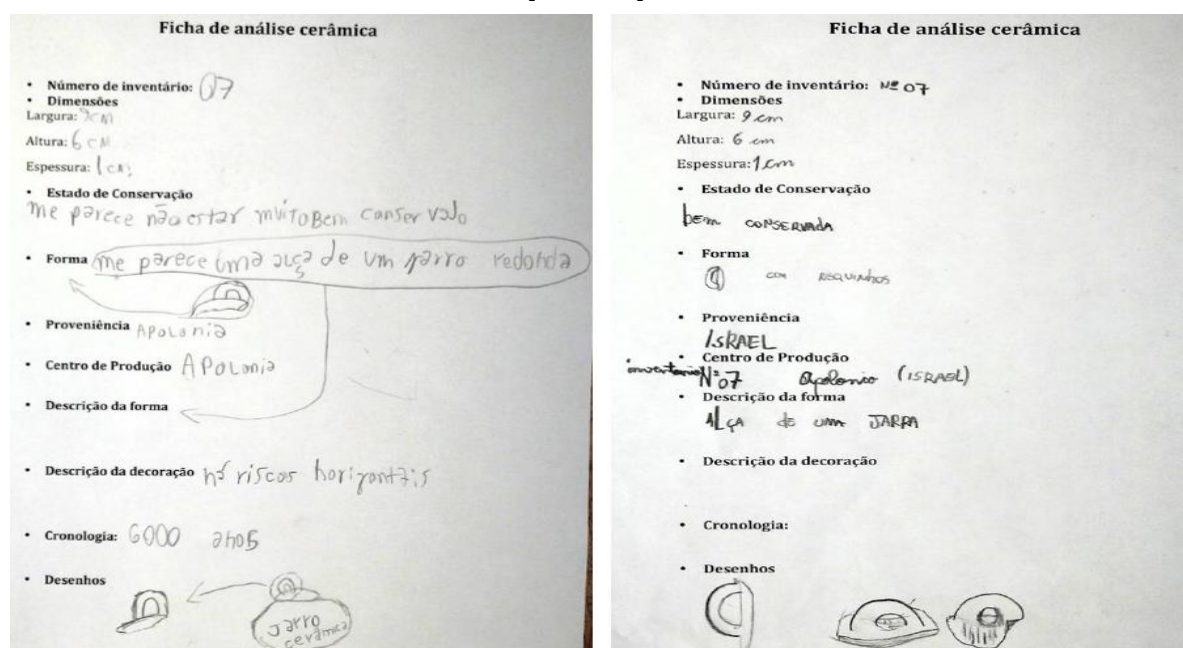 Ficha de análise cerâmica
• Número de inventário: 07
• Dimensões
Largura: 9 cM
Altura: 6 CM
Espessura: 1 cM
• Estado de Conservação
me parece não estar muito Bem conservado
• Forma me parece uma alça de um jarro redonda
• Proveniência APolonia
• Centro de Produção APolonia
• Descrição da forma
• Descrição da decoração há riscos horizontais
• Cronologia: 6000 anos
• Desenhos
Jarro
cerâmica
Ficha de análise cerâmica
• Número de inventário: Nº 07
• Dimensões
Largura: 9 cm
Altura: 6 cm
Espessura: 1 cm
• Estado de Conservação
bem CONSERVADA
• Forma
com RISQUINHOS
• Proveniência
ISRAEL
• Centro de Produção
inventario Nº 07 Apolonio (ISRAEL)
• Descrição da forma
ALÇA de uma JARRA
• Descrição da decoração
• Cronologia:
• Desenhos